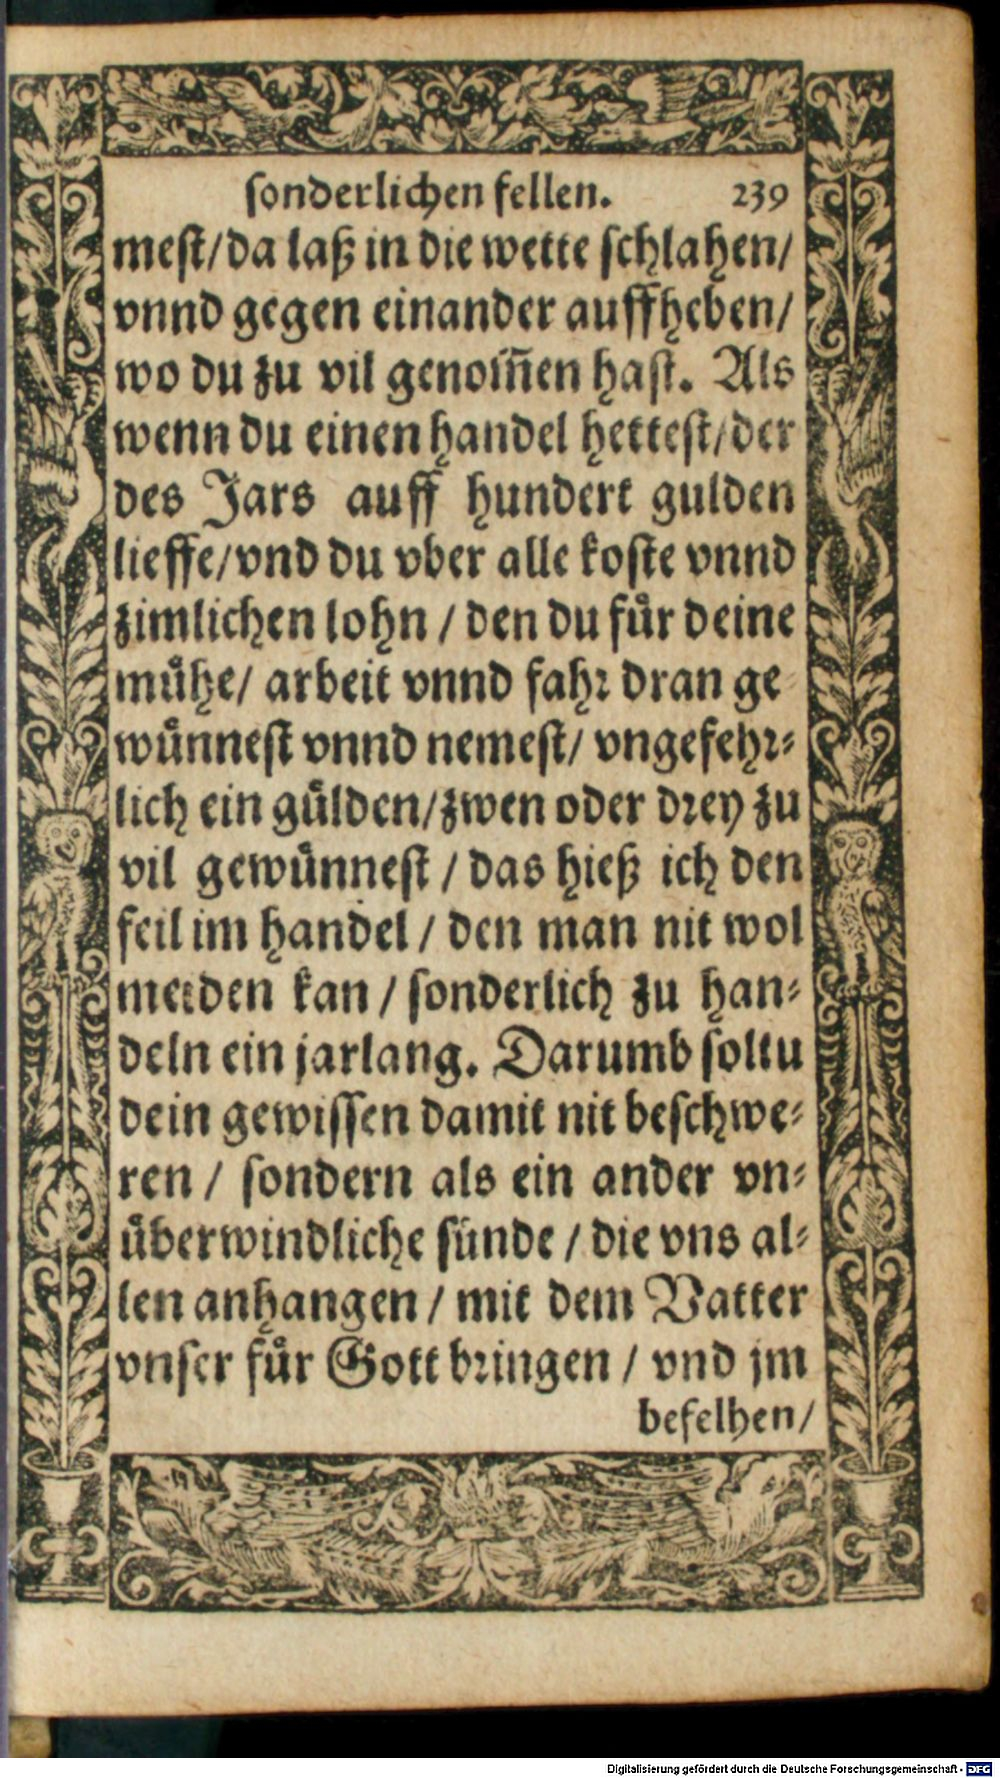 sonderlichen fellen. 239
mest/da laß in die wette schlahen/
vnnd gegen einander auffheben/
wo du zu vil genom̃en hast. Als
wenn du einen handel hettest/der
des Jars auff hundert gulden
lieffe/vnd du vber alle koste vnnd
zimlichen lohn / den du fuͤr deine
muͤhe/ arbeit vnnd fahr dran ge
wuͤnnest vnnd nemest/ vngefehr⸗
lich ein guͤlden/zwen oder drey zu
vil gewuͤnnest / das hieß ich den
feil im handel / den man nit wol
meiden kan / sonderlich zu han⸗
deln ein jarlang. Darumb soltu
dein gewissen damit nit beschwe⸗
ren / sondern als ein ander vn⸗
uͤberwindliche suͤnde / die vns al⸗
len anhangen / mit dem Vatter
vnser fuͤr Gott bringen / vnd jm
befelhen/
Digitalisierung gefördert durch die Deutsche Forschungsgemeinschaft - DFG